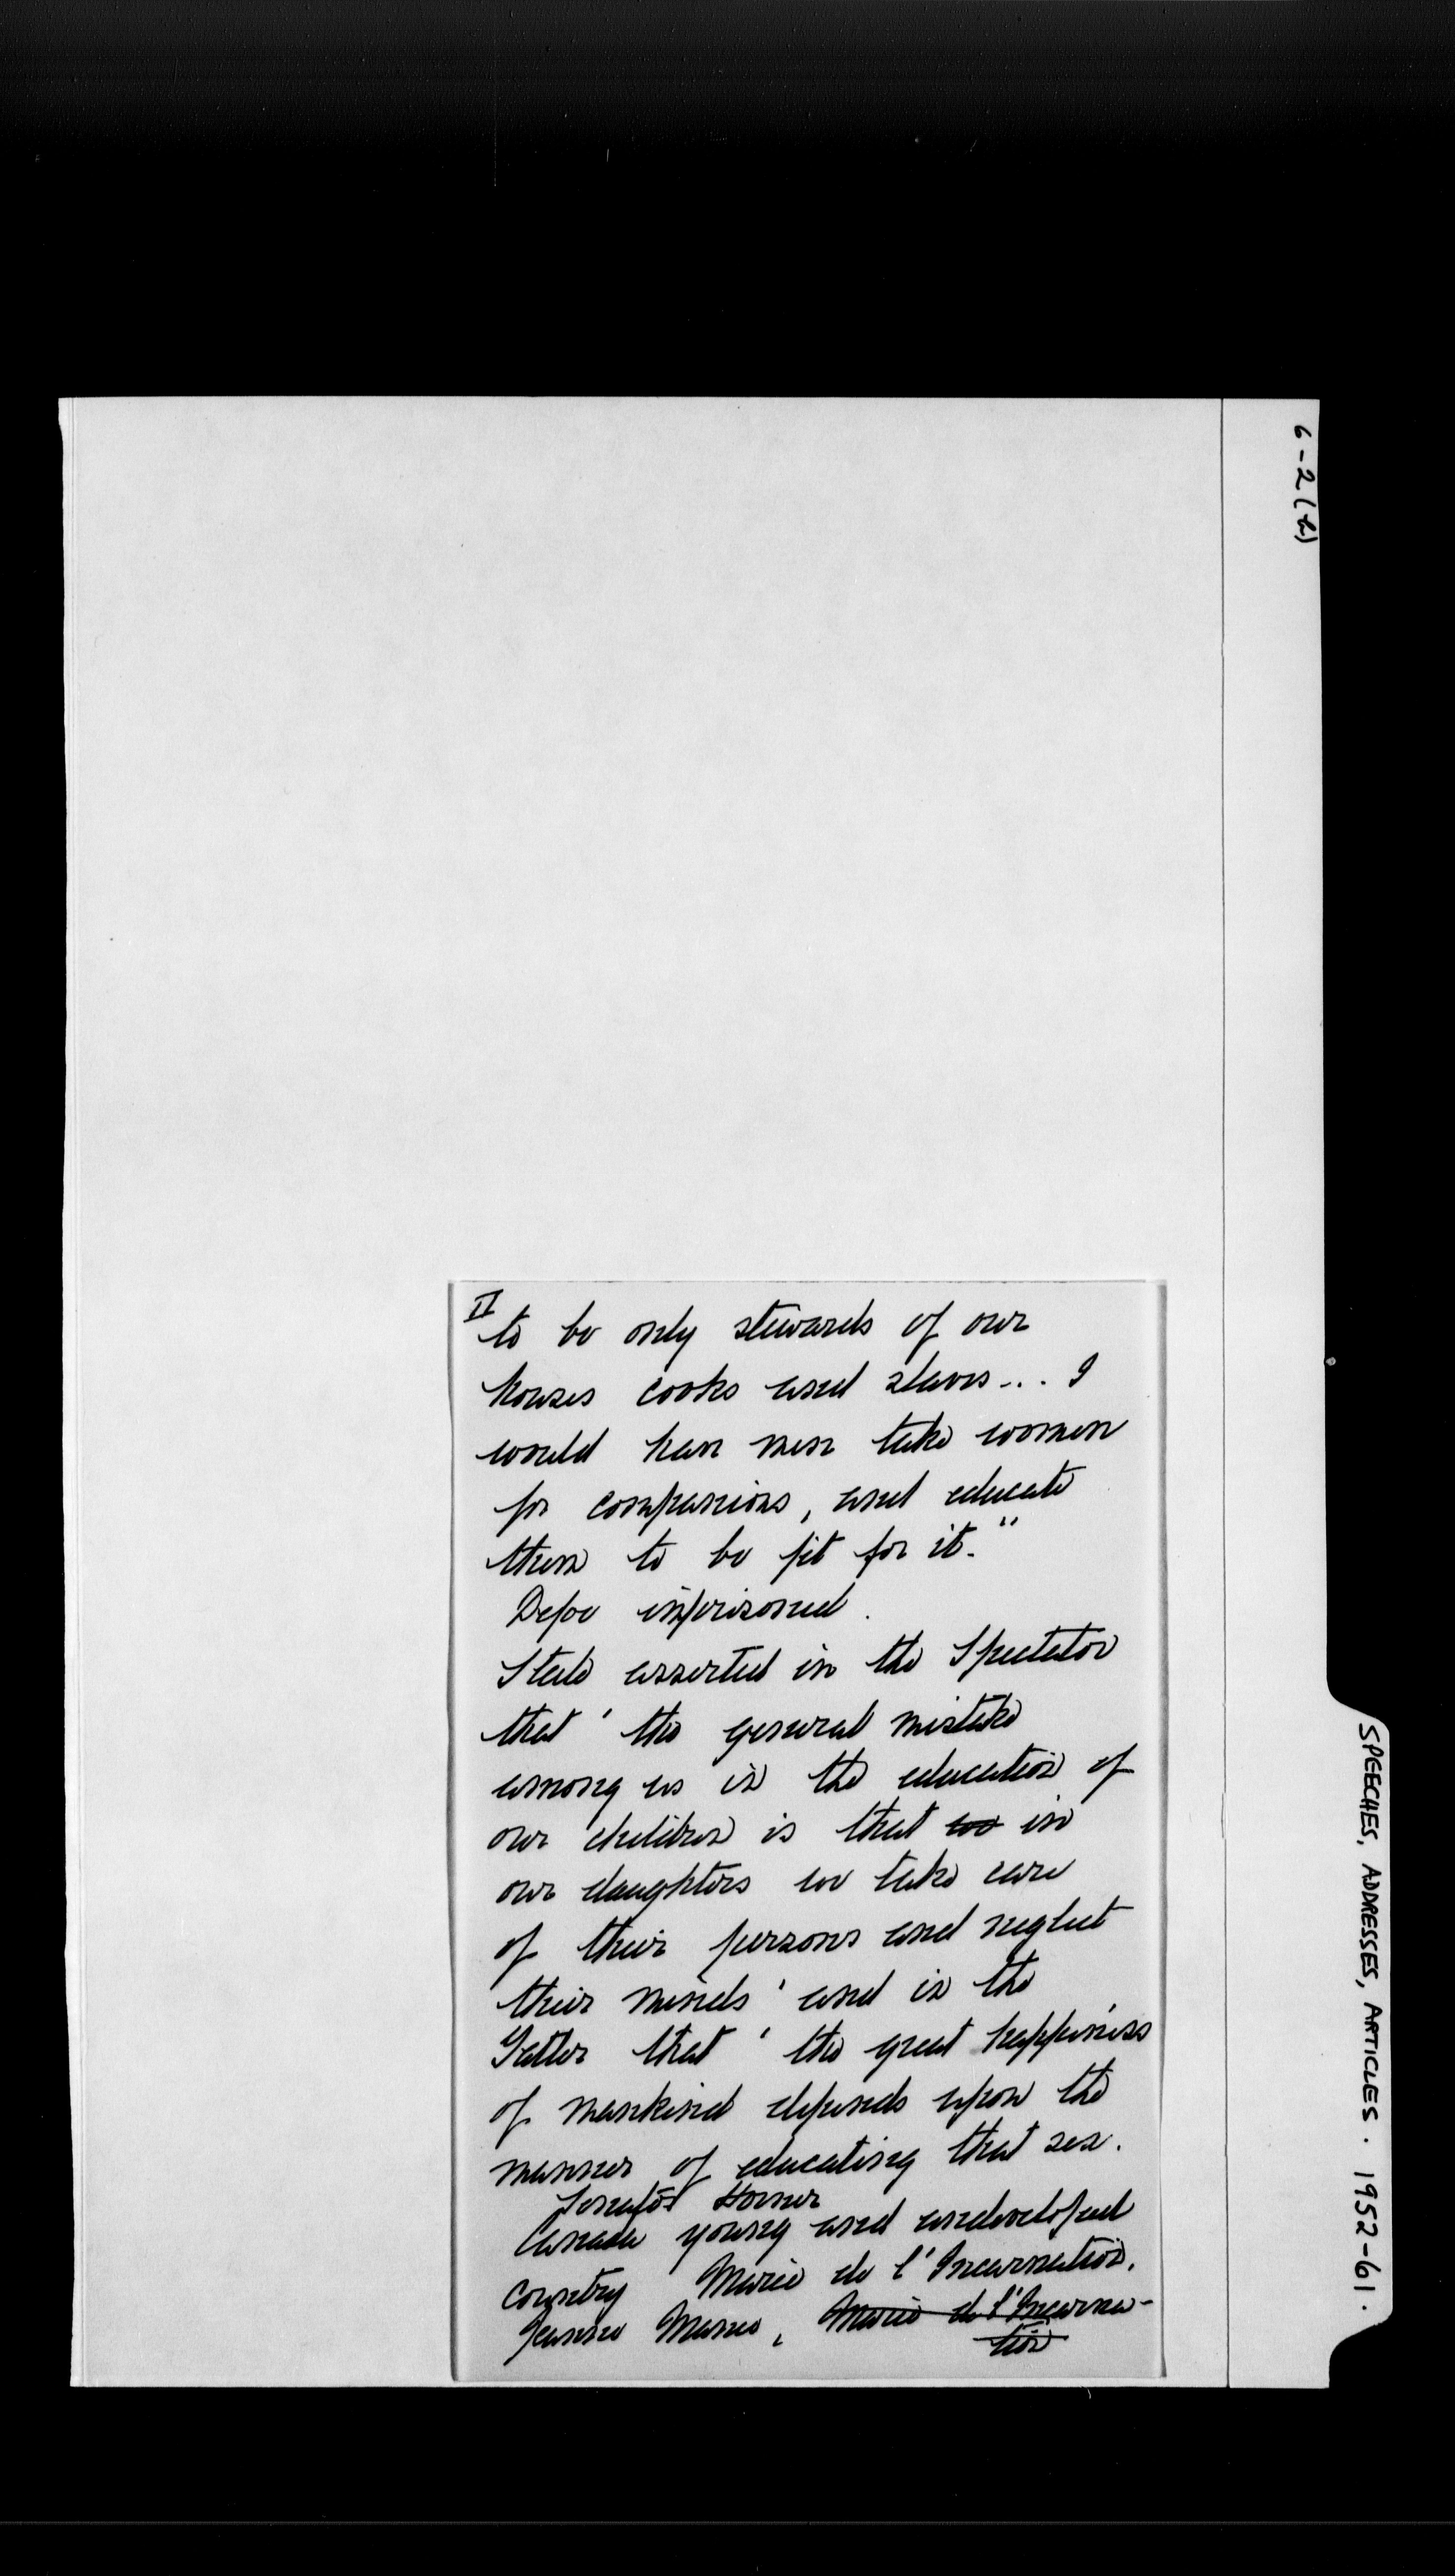 6-2(h)
SPEECHES, ADDRESSES, ARTICLES. 1952-61.
II
to be only stewards of our
houses cooks and slaves... I
would have men take women
for companions, and educate
them to be fit for it."
Defoe imprisoned.
Steele asserted in the Spectator
that 'the general mistake
among us in the education of
our children is that we in
our daughters we take care
of their persons and neglect
their minds' and in the
Tatler that 'the great happiness
of mankind depends upon the
manner of educating that sex.
Senator Horner
Canada young and undeveloped
country Marie de l'Incarnation.
Jeanne Mance, Marie de l'Incarna-
tion